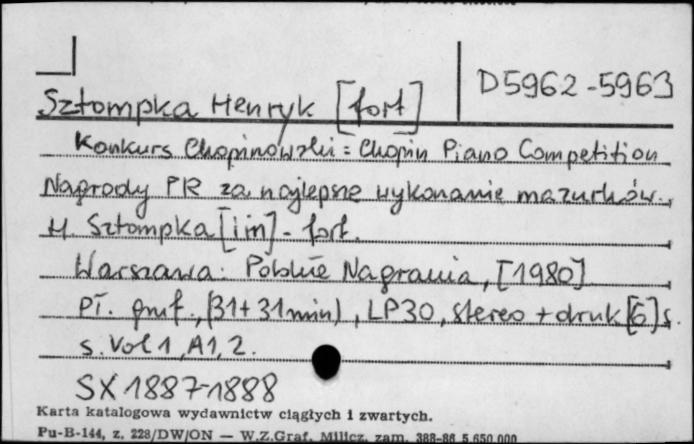 D5962-5963
Sztompka Henryk [fort]
Konkurs Chopinowski = Chopin Piano Competition
Nagrody PR za najlepsze wykonanie mazurków.,
H. Sztompka [i in] - fort.
Warszawa: Polskie Nagrania, [1980]
Pł. gmf., (31+31min), LP30, stereo + druk [6] s.
s. Vol 1, A1, 2.
SX 1887-1888
Karta katalogowa wydawnictw ciągłych i zwartych.
Pu-B-144, z. 228/DW/ON — W.Z.Graf. Milicz, zam. 388-86 5.650.000